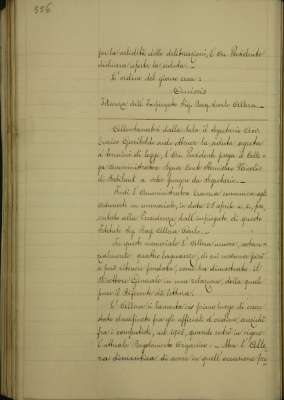 336
per la validità delle deliberazioni, l'On. Presidente
dichiara aperta la seduta.
L'ordine del giorno reca:
Omissis
Istanza dell'Impiegato Sig. Rag. Carlo Allera.
Allontanatosi dalla sala il Segretario Cav.
Enrico Garibaldi onde ritener la seduta segreta
a termini di legge, l'On. Presidente prega il Colle-
ga Amministratore Signor Conte Stanislao
di a voler fungere da Segretario.
Indi l'Amministratore comunica agli
adunati un memoriale, in data 25 aprile u. s. pre-
sentato alla Presidenza dall'impiegato di questo
Istituto Sig. Rag. Allera Carlo.
In questo memoriale l'Allera muove, sostan-
zialmente, quattro lagnanze, di cui nessuna però
si può ritenere fondata, come ha dimostrato il
Direttore Generale in una relazione, della quale
pure il Referente dà lettura.
L'Allera si lamenta in primo luogo di essere
stato classificato fra gli ufficiali d'ordine, anziché
fra i computisti, nel 1908, quando entrò in vigore
l'attuale Regolamento Organico. Ma l'Alle-
ra dimentica di avere in quell'occasione